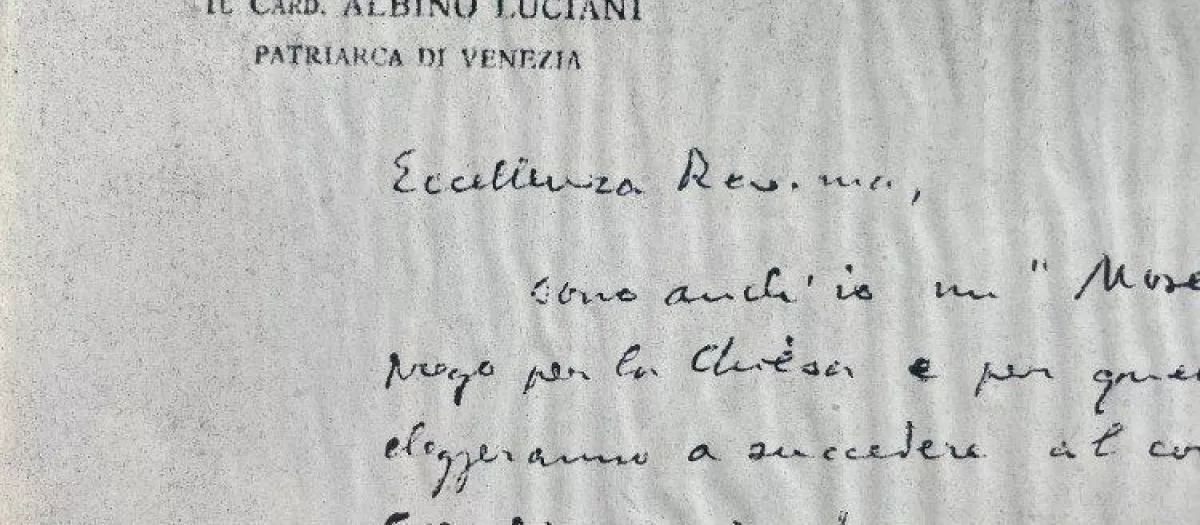 IL CARD. ALBINO LUCIANI
PATRIARCA DI VENEZIA
Eccellenza Rev.ma,
sono anch'io un "
prego per la Chiesa e per
eleggeranno a succedere al